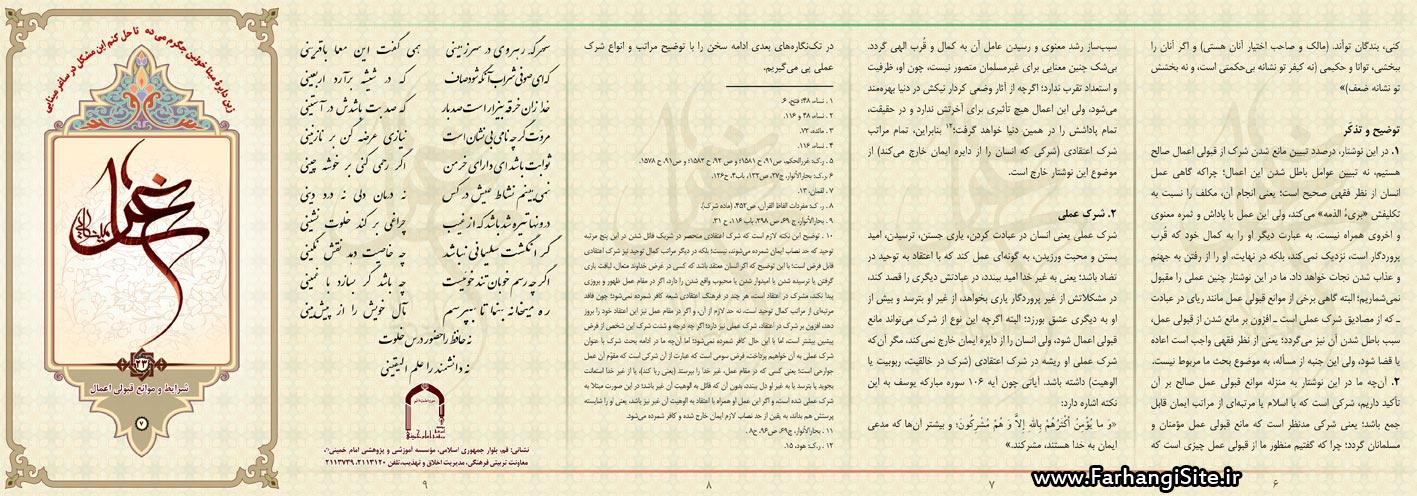 کنی، بندگان تواَند. (مالک و صاحب اختیار آنان هستی) و اگر آنان را
ببخشی، توانا و حکیمی (نه کیفر تو نشانه بی‌حکمتی است، و نه بخشش
تو نشانه ضعف)»
توضیح و تذکّر
۱. در این نوشتار، درصدد تبیین مانع شدن شرک از قبولی اعمال صالح
هستیم، نه تبیین عوامل باطل شدن این اعمال؛ چراکه گاهی عمل
انسان از نظر فقهی صحیح است؛ یعنی انجام آن، مکلف را نسبت به
تکلیفش «بریءُ الذمه» می‌کند، ولی این عمل با پاداش و ثمره معنوی
و اخروی همراه نیست. به عبارت دیگر او را به کمال خود که قُرب
پروردگار است، نزدیک نمی‌کند، بلکه در نهایت، او را از رفتن به جهنم
و عذاب شدن نجات خواهد داد. ما در این نوشتار چنین عملی را مقبول
نمی‌شماریم؛ البته گاهی برخی از موانع قبولی عمل مانند ریای در عبادت
ـ که از مصادیق شرک عملی است ـ افزون بر مانع شدن از قبولی عمل،
سبب باطل شدن آن نیز می‌گردد؛ یعنی از نظر فقهی واجب است اعاده
یا قضا شود، ولی این جنبه از مسأله، به موضوع بحث ما مربوط نیست.
۲. آن‌چه ما در این نوشتار به منزله موانع قبولی عمل صالح بر آن
تأکید داریم، شرکی است که با اسلام یا مرتبه‌ای از مراتب ایمان قابل
جمع باشد؛ یعنی شرکی مدنظر است که مانع قبولی عمل مؤمنان و
مسلمانان گردد؛ چرا که گفتیم منظور ما از قبولی عمل چیزی است که
۶
سبب‌ساز رشد معنوی و رسیدن عامل آن به کمال و قُرب الهی گردد.
بی‌شک چنین معنایی برای غیرمسلمان متصور نیست، چون او، ظرفیت
و استعداد تقرب ندارد؛ اگرچه از آثار وضعی کردار نیکش در دنیا بهره‌مند
می‌شود، ولی این اعمال هیچ تأثیری برای آخرتش ندارد و در حقیقت،
تمام پاداشش را در همین دنیا خواهد گرفت؛۱۲ بنابراین، تمام مراتب
شرک اعتقادی (شرکی که انسان را از دایره ایمان خارج می‌کند) از
موضوع این نوشتار خارج است.
۲. شرک عملی
شرک عملی یعنی انسان در عبادت کردن، یاری جستن، ترسیدن، امید
بستن و محبت ورزیدن، به گونه‌ای عمل کند که با اعتقاد به توحید در
تضاد باشد؛ یعنی به غیر خدا امید ببندد، در عبادتش دیگری را قصد کند،
در مشکلاتش از غیر پروردگار یاری بخواهد، از غیر او بترسد و بیش از
او به دیگری عشق بورزد؛ البته اگرچه این نوع از شرک می‌تواند مانع
قبولی اعمال شود، ولی انسان را از دایره ایمان خارج نمی‌کند، مگر آن‌که
شرک عملی او ریشه در شرک اعتقادی (شرک در خالقیت، ربوبیت یا
الوهیت) داشته باشد. آیاتی چون آیه ۱۰۶ سوره مبارکه یوسف به این
نکته اشاره دارد:
«وَ ما یُؤْمِنُ أَکْثَرُهُمْ بِاللهِ إِلاَّ وَ هُمْ مُشْرِکُونَ؛ و بیشتر آن‌ها که مدعی
ایمان به خدا هستند، مشرکند.»
۷
در تک‌نگاره‌های بعدی ادامه سخن را با توضیح مراتب و انواع شرک
عملی پی می‌گیریم.
۱ . نساء، ۴۸؛ فتح، ۶.
۲ . نساء، ۴۸ و ۱۱۶.
۳ . مائده، ۷۲.
۴ . نساء، ۱۱۶.
۵ . رک: غررالحکم، ص۹۱، ح ۱۵۸۱؛ و ص ۹۲، ح ۱۵۸۲؛ و ص۹۱، ح ۱۵۷۸.
۶ . رک: بحارالأنوار، ج۲۷، ص۱۳۲، باب۴، ح۱۲۶.
۷ . لقمان، ۱۳.
۸ . رک: مفردات الفاظ القرآن، ص۴۵۲، (ماده شرک).
۹ . بحارالأنوار، ج ۶۹، ص ۳۹۸، باب ۱۱۶، ح ۳۱.
۱۰ . توضیح این نکته لازم است که شرک اعتقادی منحصر در شریک قائل شدن در این پنج مرتبه
توحید که حد نصاب ایمان شمرده می‌شوند، نیست؛ بلکه در دیگر مراتب کمال توحید نیز شرک اعتقادی
قابل فرض است؛ با این توضیح که اگر انسان معتقد باشد که کسی در عرض خداوند متعال، لیاقت یاری
گرفتن یا ترسیده شدن یا امیدوار شدن یا محبوب واقع شدن را دارد، اگر در مقام عمل ظهور و بروزی
پیدا نکند، مشرک در اعتقاد است، هر چند در فرهنگ اعتقادی شیعه کافر شمرده نمی‌شود؛ چون فاقد
مرتبه‌ای از مراتب کمال توحید است، نه حد لازم از آن، و اگر در مقام عمل نیز این اعتقاد خود را بروز
دهد، افزون بر شرک در اعتقاد، شرک عملی نیز دارد؛ اگر چه درجه و شدت شرک این شخص از فرض
پیشین بیشتر است، اما با این حال کافر شمرده نمی‌شود؛ اما آن‌چه ما در ادامه بحث شرک با عنوان
شرک عملی به آن خواهیم پرداخت، فرض سومی است که عبارت از آن شرکی است که مقوّم آن عمل
جوارحی است؛ یعنی کسی که در مقام عمل، غیر خدا را بپرستد (یعنی ریا کند)، یا از غیر خدا استعانت
بجوید یا بترسد یا به غیر او دل ببندد، بدون آن که قائل به الوهیت آن غیر باشد؛ در این صورت مبتلا به
شرک عملی شده است، و اگر این عمل او همراه با اعتقاد به الوهیت آن غیر نیز باشد، یعنی او را شایسته
پرستش هم بداند، به یقین از حد نصاب لازم ایمان خارج شده و کافر شمرده می‌شود.
۱۱ . بحارالأنوار، ج۶۹، ص۹۶، ح۸ .
۱۲ . رک: هود، ۱۵.
۸
سحرگه رهروی در سرزمینی همی گفت این معما با قرینی
که ای صوفی شراب آنگه شود صاف که در شیشه برآرد اربعینی
خدا زان خرقه بیزار است صد بار که صد بت باشدش در آستینی
مروّت گر چه نامی بی‌نشان است نیازی عرضه کن بر نازنینی
ثوابت باشد ای دارای خرمن اگر رحمی کنی بر خوشه چینی
نمی‌بینم نشاط عیش در کس نه درمان دلی نه درد دینی
درونها تیره شد باشد که از غیب چراغی بر کند خلوت نشینی
گر انگشت سلیمانی نباشد چه خاصیت دهد نقش نگینی
اگر چه رسم خوبان تندخوئیست چه باشد گر بسازد با غمینی
ره میخانه بنما تا بپرسم مآل خویش را از پیش‌بینی
نه حافظ را حضور درس خلوت
نه دانشمند را علم الیقینی
نشانی: قم، بلوار جمهوری اسلامی، مؤسسه آموزشی و پژوهشی امام خمینی
معاونت تربیتی فرهنگی، مدیریت اخلاق و تهذیب، تلفن ۲۱۱۳۱۲۰ ـ ۲۱۱۳۷۳۹
۹
زین دایرهٔ مینا خونین جگرم می ده تا حل کنم این مشکل در ساغر مینایی
۲۳
شرایط و موانع قبولی اعمال
۷
www.FarhangiSite.ir